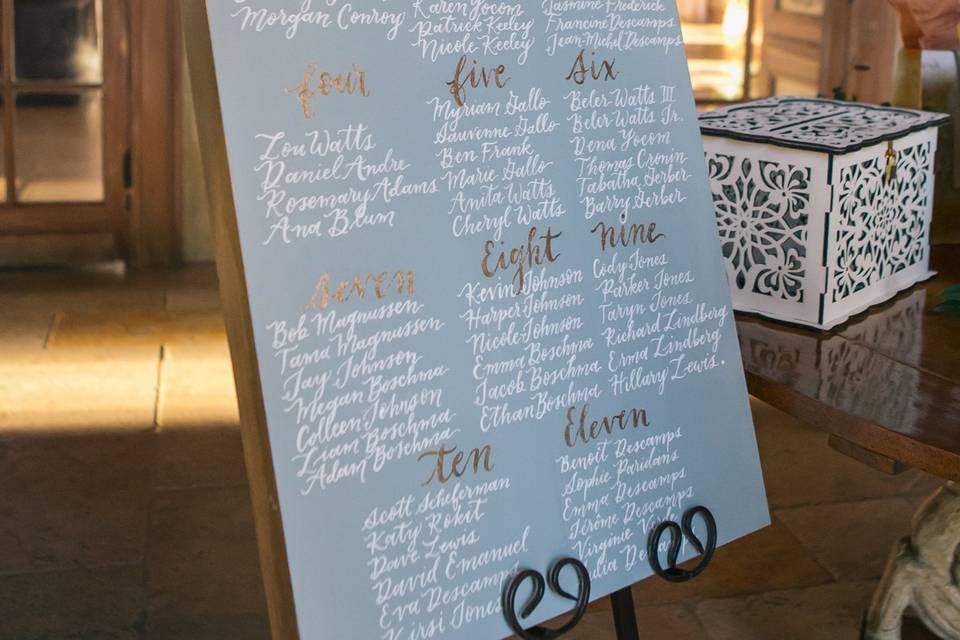 Morgan Conroy
Karen Yocom
Patrick Keeley
Nicole Keeley
Jasmine Frederick
Francine Descamps
Jean-Michel Descamps
four
Lou Watts
Daniel Andre
Rosemary Adams
Ana Blum
five
Myriam Gallo
Sauvenne Gallo
Ben Frank
Marie Gallo
Anita Watts
Cheryl Watts
six
Beler-Watts III
Beler-Watts Jr.
Dena Yocom
Thomas Cronin
Tabatha Serber
Barry Serber
seven
Bob Magnussen
Tama Magnussen
Jay Johnson
Megan Boschma
Colleen Johnson
Liam Boschma
Adam Boschma
Eight
Kevin Johnson
Harper Johnson
Nicole Johnson
Emma Boschma
Jacob Boschma
Ethan Boschma
nine
Cody Jones
Parker Jones
Taryn Jones
Richard Lindberg
Erma Lindberg
Hillary Lewis.
ten
Scott Scheferman
Katy Rokit
Dave Lewis
David Emanuel
Eva Descamps
Kirsi Jones
Eleven
Benoit Descamps
Sophie Paridans
Emma Descamps
Jérôme Descamps
Virginie